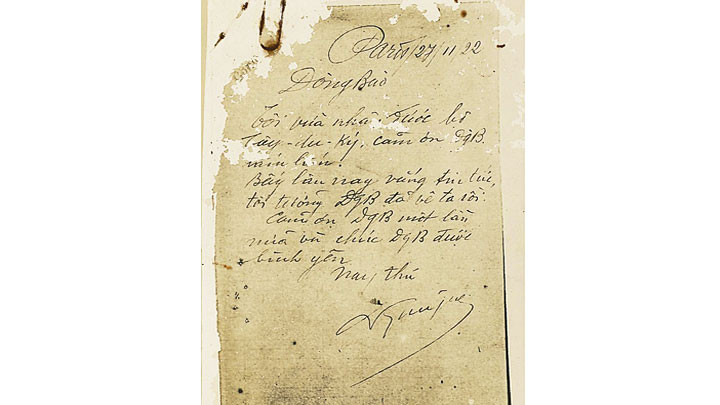 Paris, 27/11 22
Đồng Bào
Tôi vừa nhận được bộ
Tây-du-Ký, cảm ơn ĐgB.
Bấy lâu nay vắng tin tức,
tôi tưởng ĐgB đã về ta rồi.
Cảm ơn ĐgB một lần
nữa và chúc ĐgB được
bình yên
Nay thư